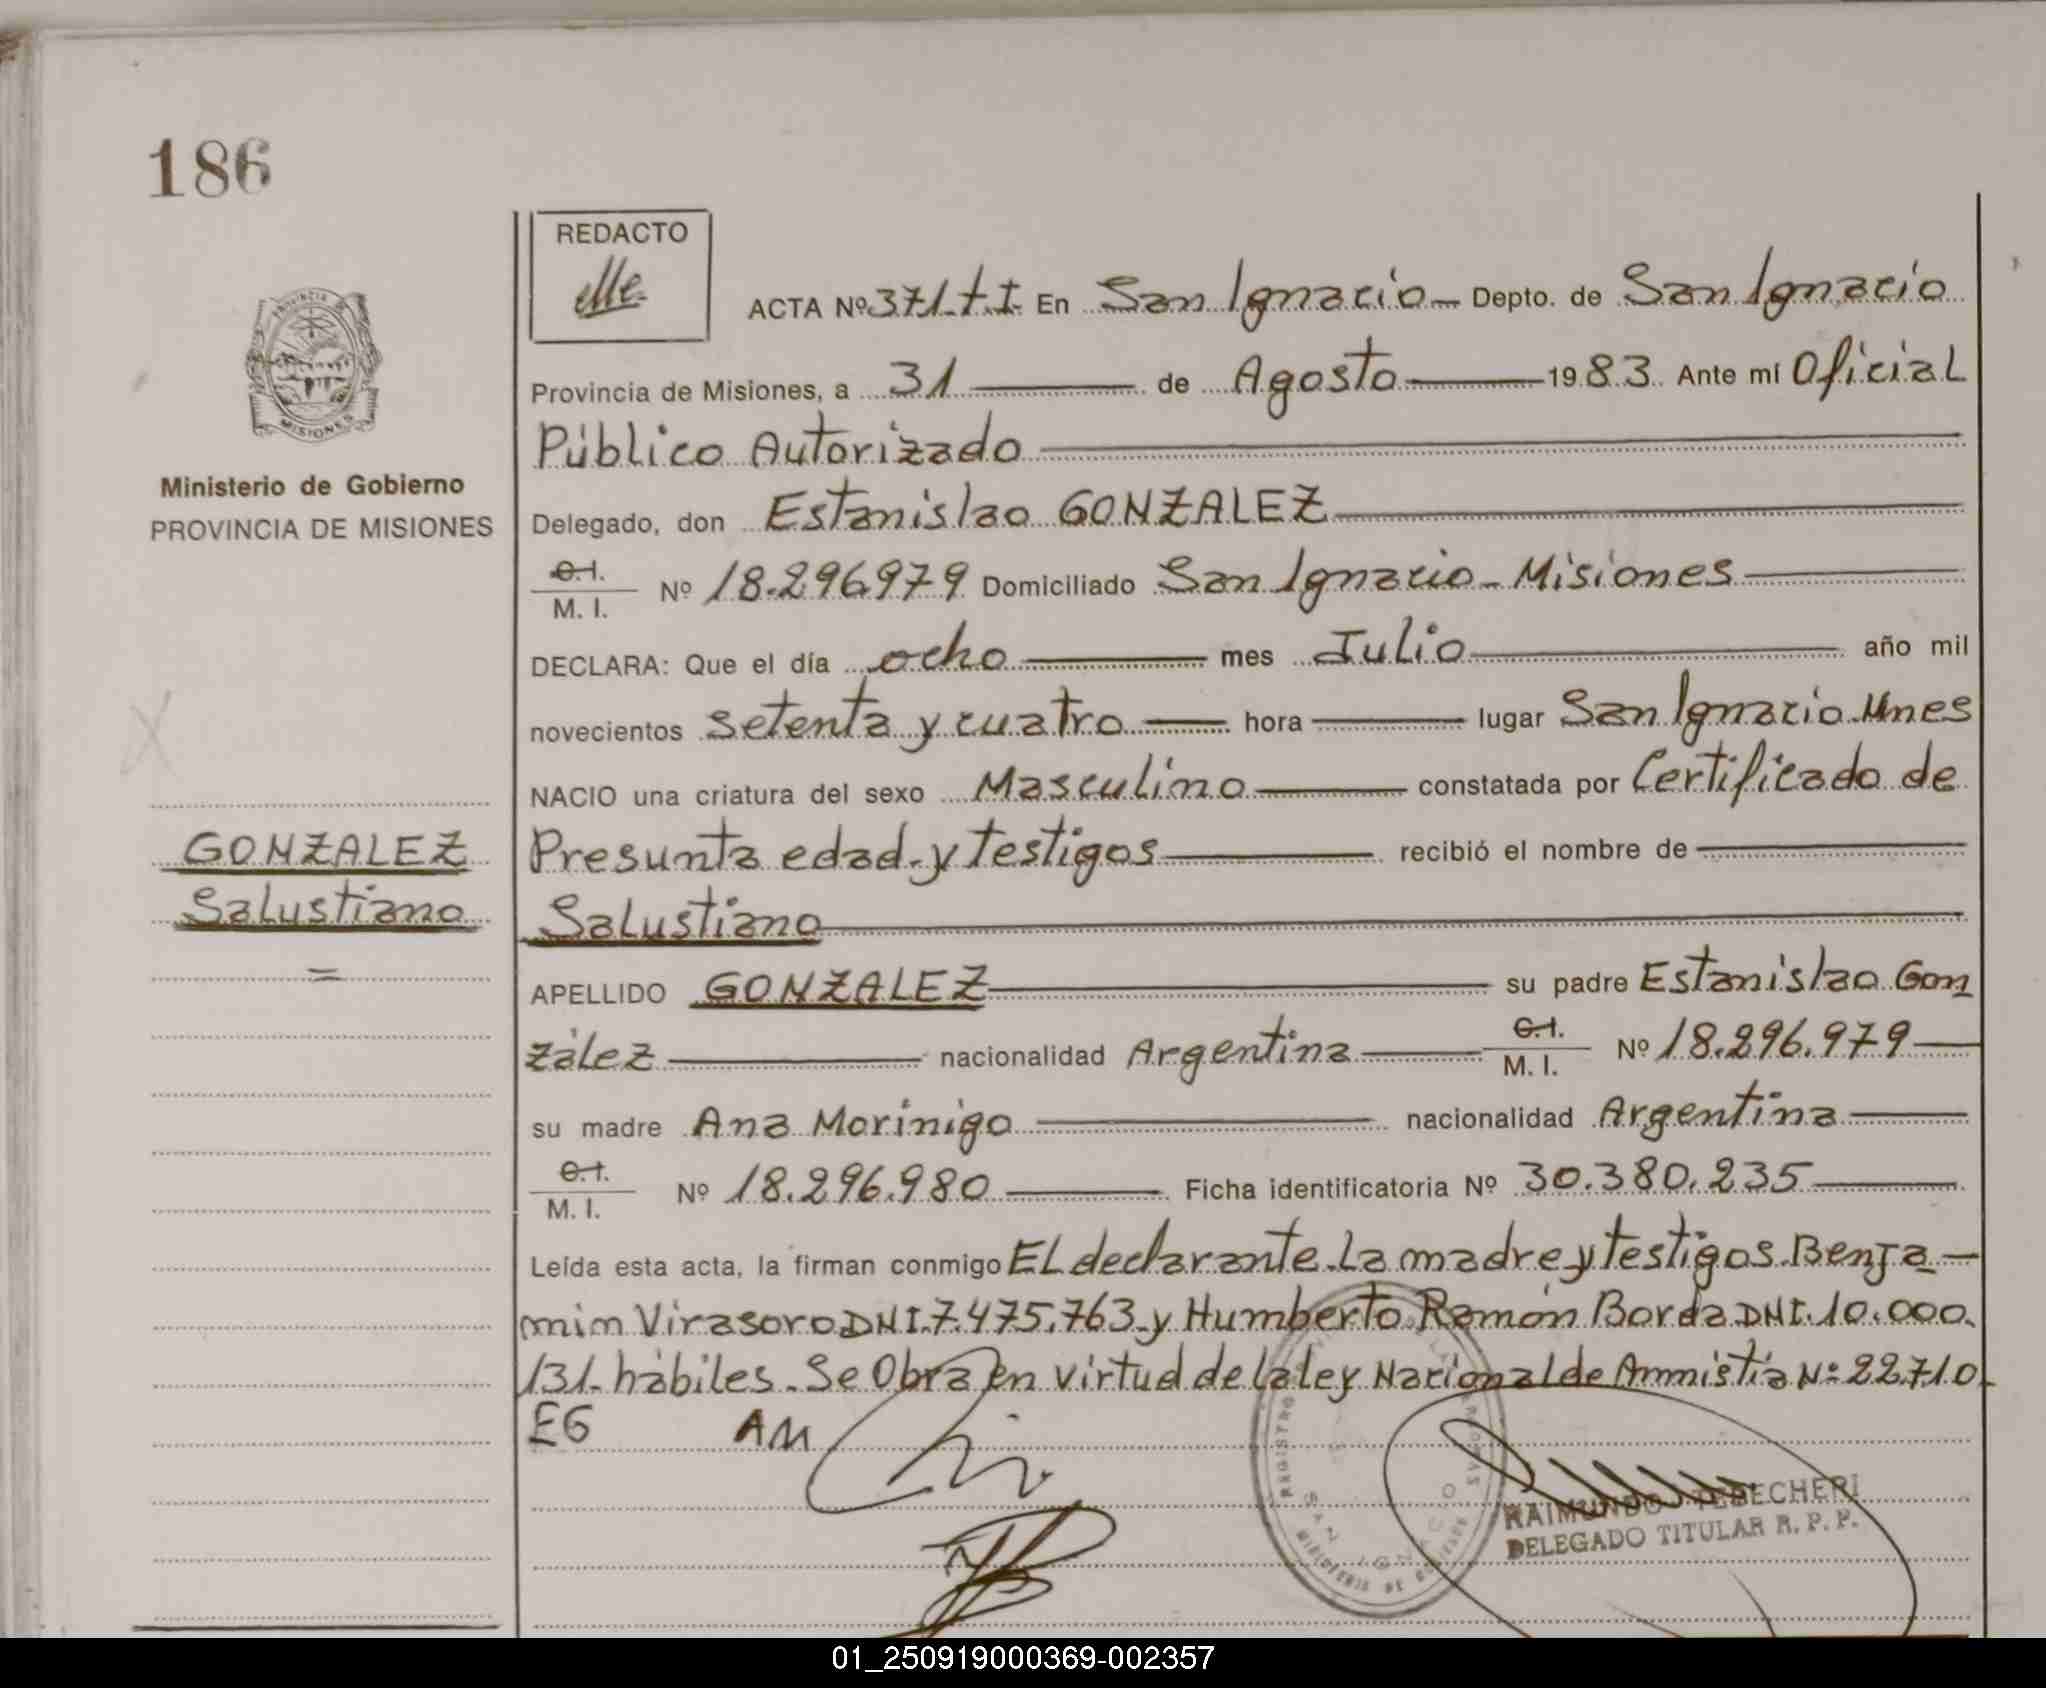 186
REDACTO
ACTA Nº 371.T.I. En San Ignacio Depto. de San Ignacio
Provincia de Misiones, a 31 de Agosto 1983. Ante mí Oficial
Público Autorizado
Delegado, don Estanislao GONZALEZ
C.I. / M. I. Nº 18.296.979 Domiciliado San Ignacio - Misiones
DECLARA: Que el día ocho mes Julio año mil
novecientos setenta y cuatro hora lugar San Ignacio Mnes
NACIO una criatura del sexo Masculino constatada por Certificado de
Presunta edad y testigos recibió el nombre de
Salustiano
APELLIDO GONZALEZ su padre Estanislao Gon
zález nacionalidad Argentina C.I. / M. I. Nº 18.296.979
su madre Ana Morinigo nacionalidad Argentina
C.I. / M. I. Nº 18.296.980 Ficha identificatoria Nº 30.380.235
Leída esta acta, la firman conmigo EL declarante. La madre y testigos. Benja-
min Virasoro DNI. 7.475.763 y Humberto Ramón Borda DNI. 10.000.
131. hábiles. Se Obra en virtud de la ley Nacional de Ammistía Nº 22.710
EG AM
PROVINCIA DE
MISIONES
Ministerio de Gobierno
PROVINCIA DE MISIONES
GONZALEZ
Salustiano
=
SAN IGNACIO
MINISTERIO DE GOBIERNO
RAIMUNDO TEBECHERI
DELEGADO TITULAR R. P. P.
01_250919000369-002357